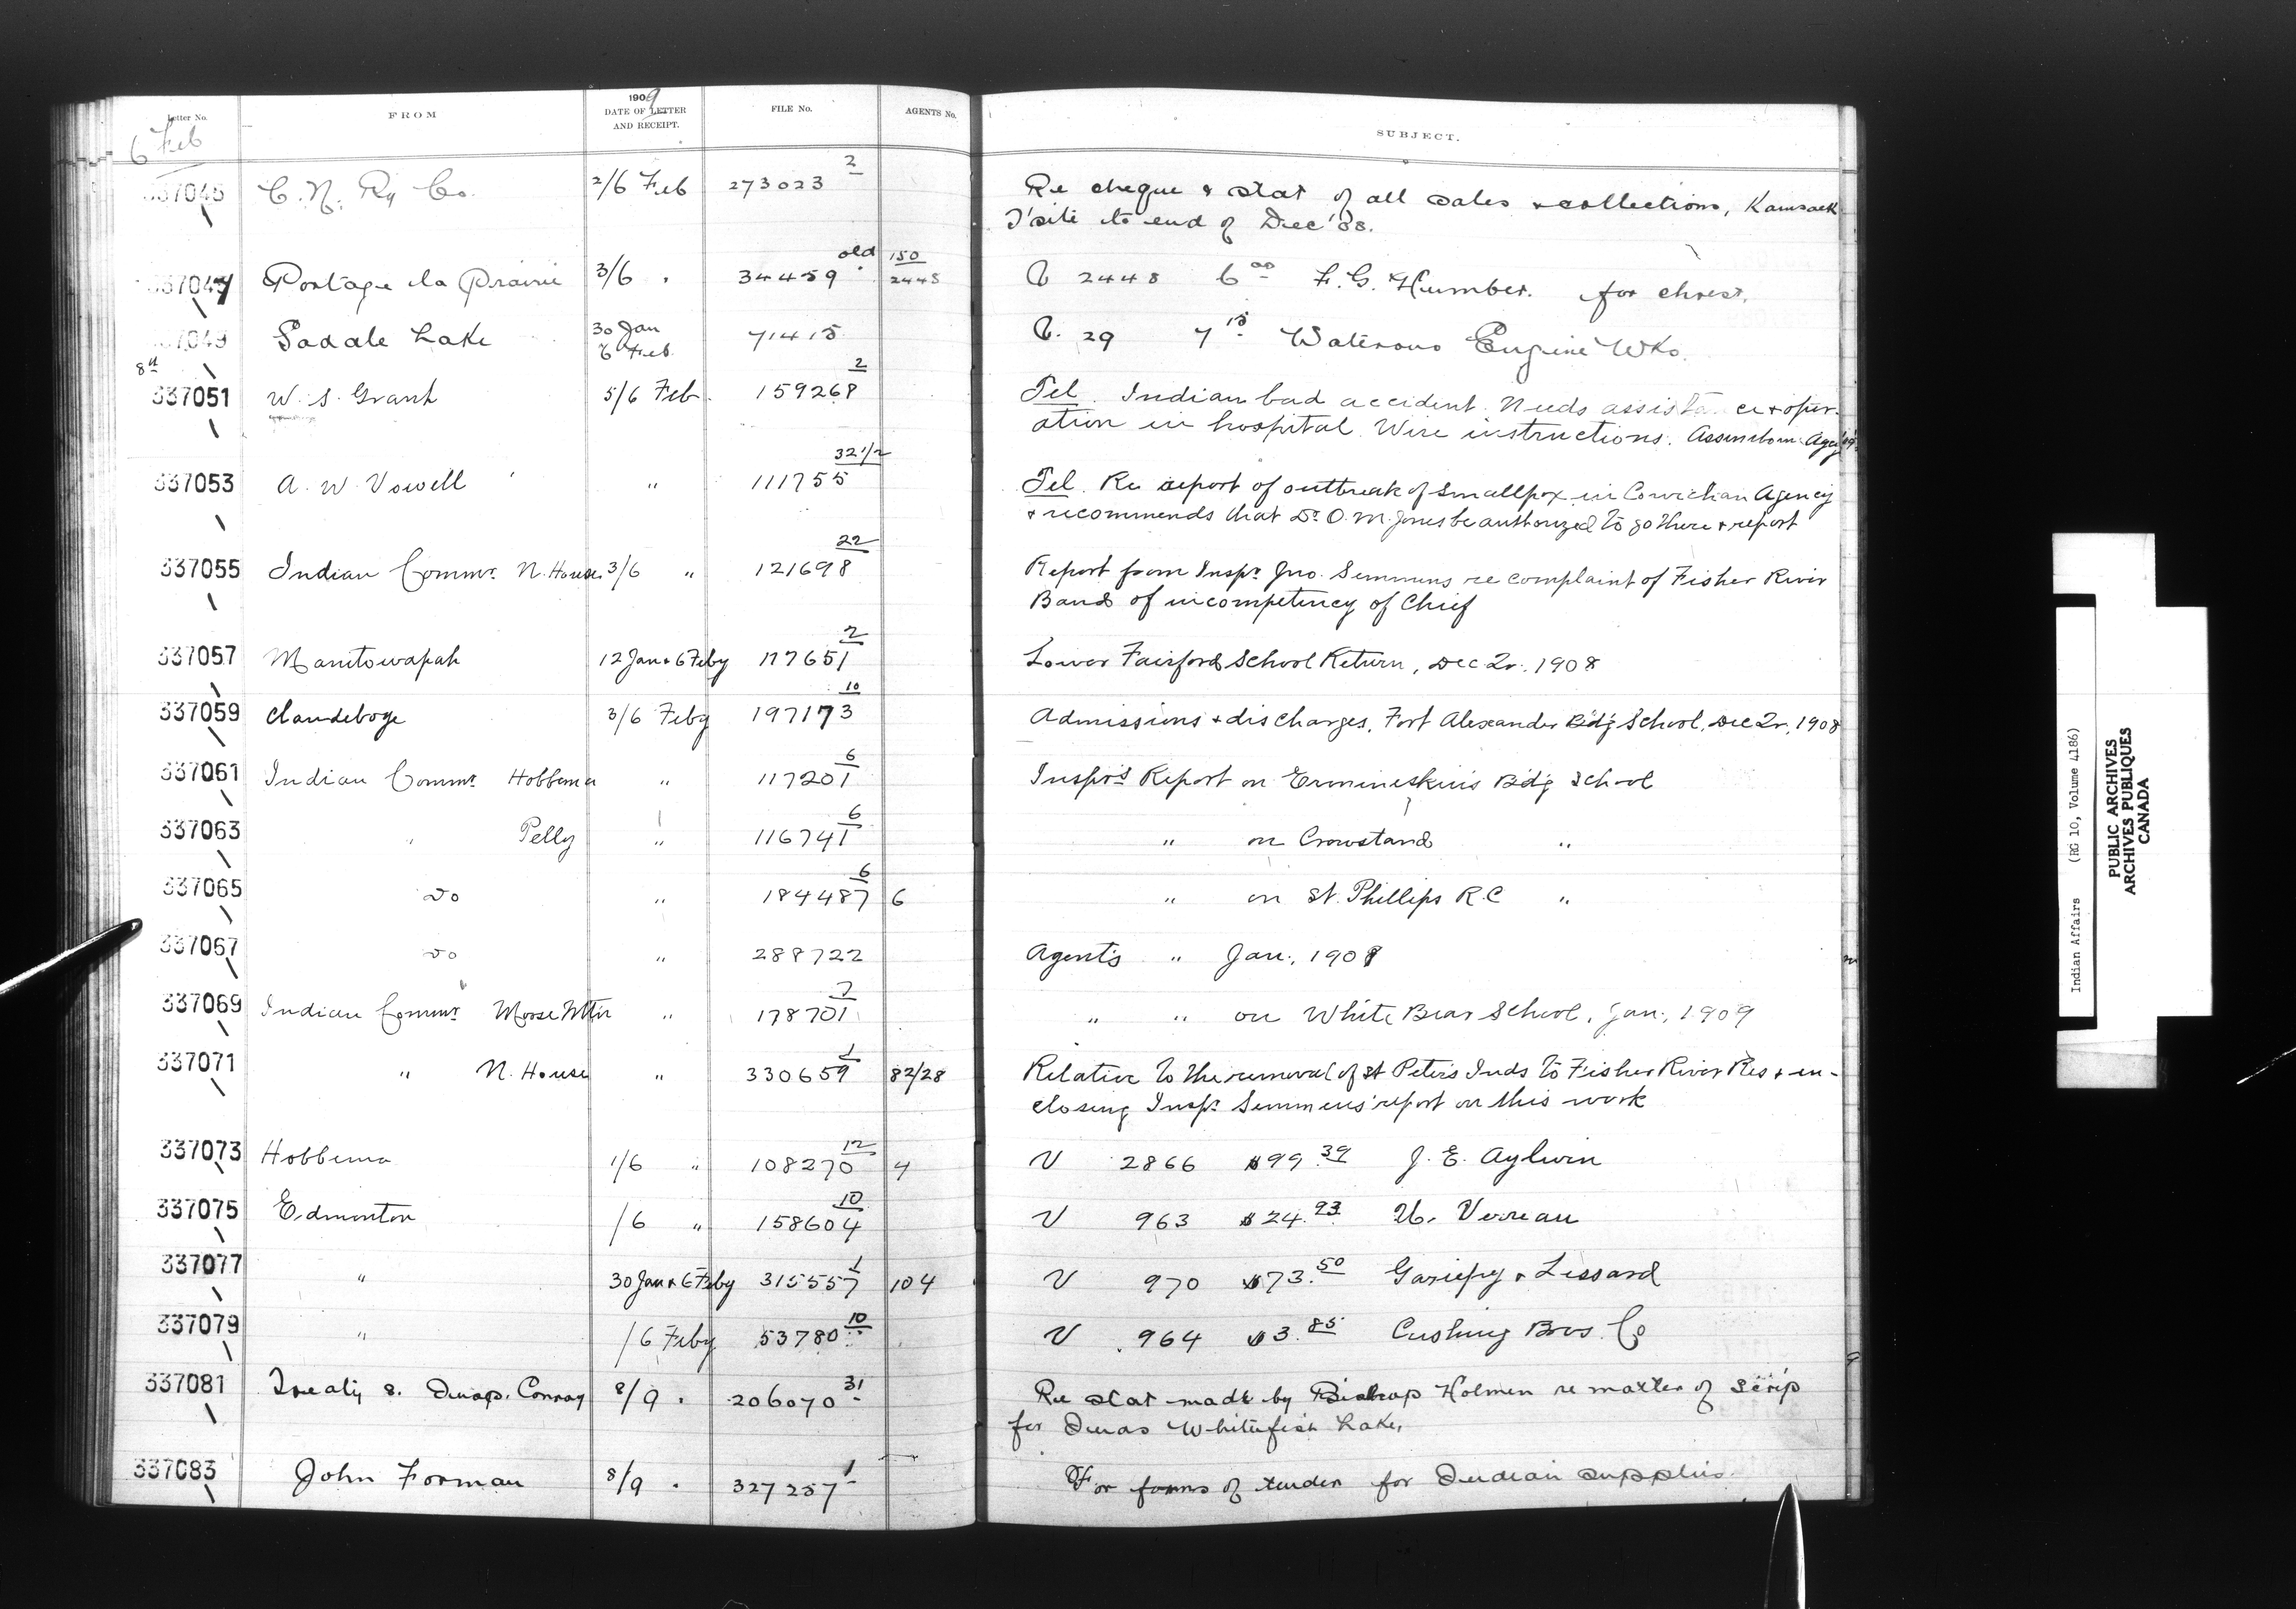 Letter No. FROM 1909 DATE OF LETTER AND RECEIPT. FILE No. AGENTS No. SUBJECT.
6 Feb
337045 C. N. Ry Co. 2/6 Feb 273023 2 Re cheque & stat of all sales & collections, Kamsack
T'site to end of Dec '08.
337047 Portage la Prairie 3/6 " 34459 old 150 2448 V 2448 6 00 F. G. Humber. for chrest.
337049 Saddle Lake 30 Jan 6 Feb 71415 V. 29 7 15 Waterous Engine Wks.
8th
337051 W. S. Grant 5/6 Feb 159268 2 Tel. Indian bad accident. Needs assistance & oper-
ation in hospital. Wire instructions. Assiniboine Agcy
337053 A. W. Vowell " 111755 32 1/2 Tel. Re report of outbreak of smallpox in Cowichan Agency
& recommends that Dr O. M. Jones be authorized to go there & report
337055 Indian Commr. N. House 3/6 " 121698 22 Report from Inspr. Jno. Semmens re complaint of Fisher River
Band of incompetency of Chief
337057 Manitowapah 12 Jan & 6 Feby 117651 2 Lower Fairford School Return, Dec Qr. 1908
337059 Clandeboye 3/6 Feby 197173 10 Admissions & discharges, Fort Alexander Bd'g School, Dec Qr, 1908
337061 Indian Commr. Hobbema " 117201 6 Inspr's Report on Ermineskin's Bd'g School
337063 " Pelly " 116741 6 " on Crowstand "
337065 Do " 184487 6 6 " on St. Phillips R.C "
337067 Do " 288722 Agent's " Jan., 1909
337069 Indian Commr Moose Mtn " 178701 7 " " on White Bear School, Jan., 1909
337071 " N. House " 330659 1 82/28 Relative to the removal of St Peter's Inds to Fisher River Res & en-
closing Inspr. Semmens' report on this work
337073 Hobbema 1/6 " 108270 12 4 V 2866 $99.39 J. E. Aylwin
337075 Edmonton /6 " 158604 10 V 963 $24.93 U. Verreau
337077 " 30 Jan & 6 Feby 315557 1 104 V 970 $73.50 Gariepy & Lessard
337079 " /6 Feby 53780 10 V 964 $3.85 Cushing Bros. Co
337081 Treaty 8. Inspr. Conroy 8/9 " 206070 31 Re stat made by Bishop Holmes re matter of scrip
for Inds Whitefish Lake,
337083 John Forman 8/9 " 327257 1 For forms of tender for Indian supplies
Indian Affairs (RG 10, Volume 4186)
PUBLIC ARCHIVES
ARCHIVES PUBLIQUES
CANADA